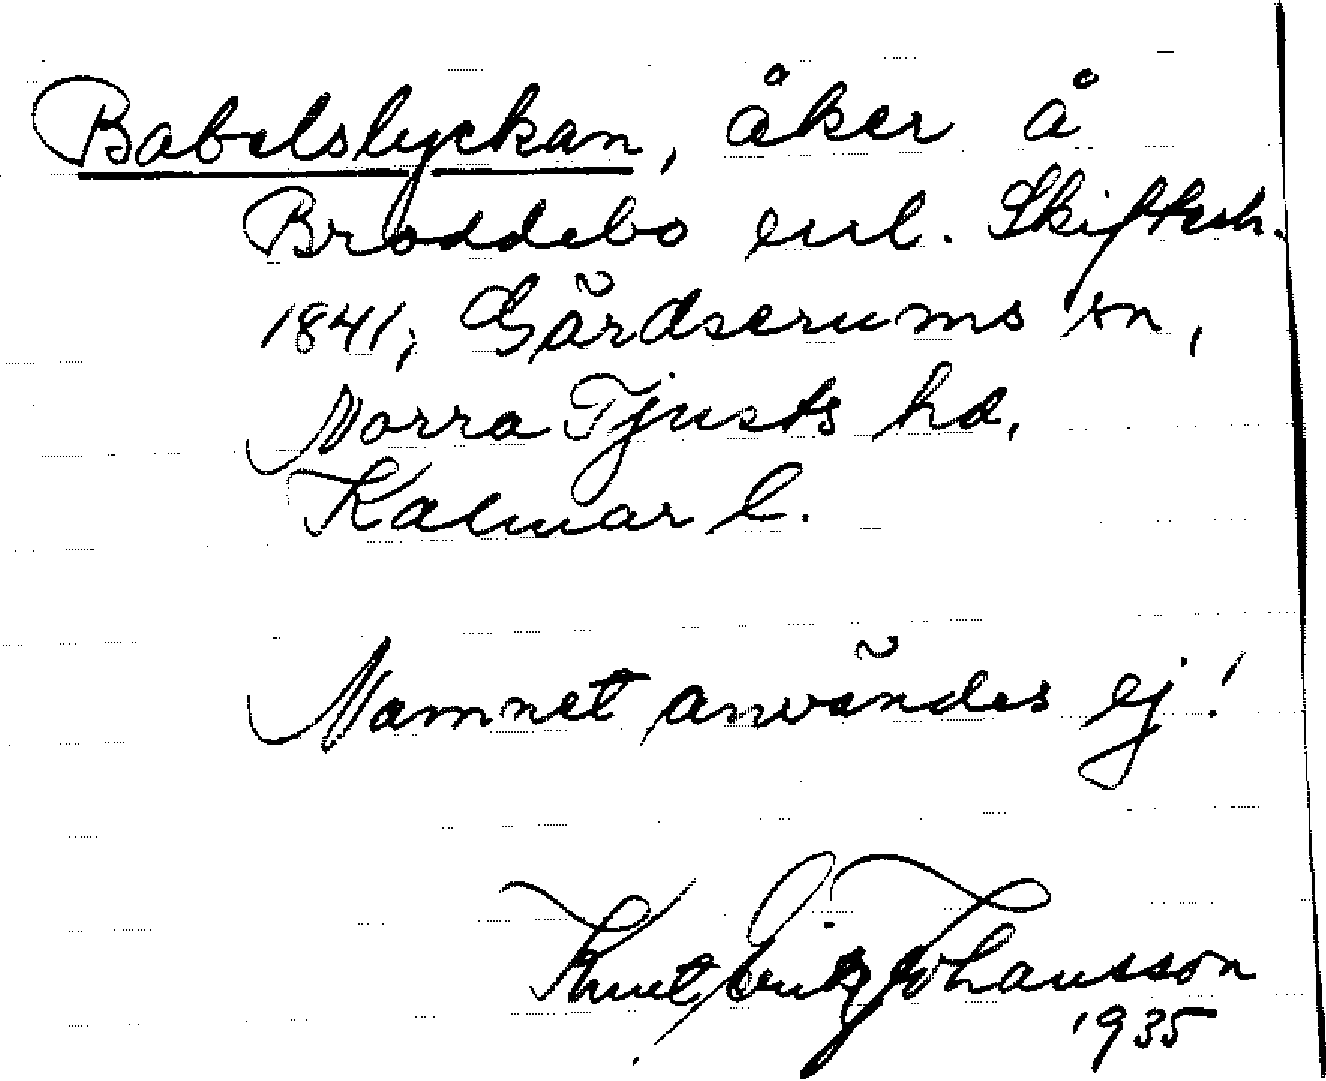 Babelslyckan, åker å
Broddebo enl. Skiftesh.
1841, Gärdserums sn,
Norra Tjusts hd,
Kalmar l.
Namnet användes ej!
Knut Fritz Johansson
1935